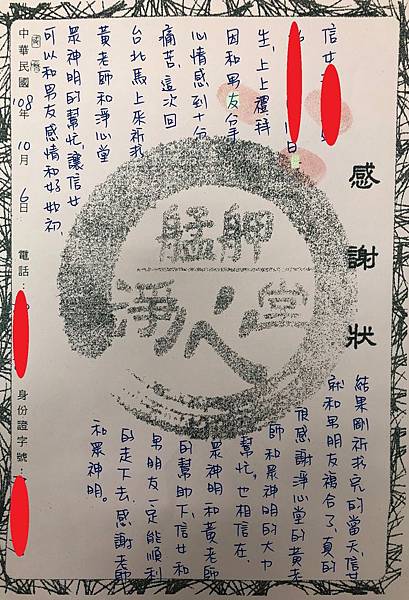 感謝狀
信女
日
生,上上禮拜
因和男友分手
心情感到十分
痛苦,這次回
台北馬上來祈求
黃老師和淨心堂
眾神明的幫忙,讓信女
可以和男友感情和好如初,
結果剛祈求完的當天,信女
就和男朋友複合了,真的
很感謝淨心堂的黃老
師和眾神明的大力
幫忙,也相信在
眾神明和黃老師
的幫助下信女和
男朋友一定能順利
的走下去,感謝老師
和眾神明。
艋舺
淨心堂
國曆
中華民國108年10月6日 電話: 身份證字號: